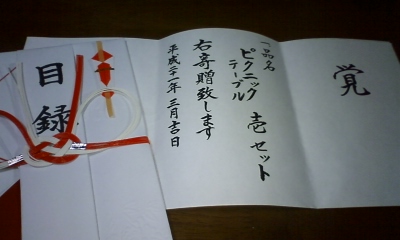 覚
一、品名
ピクニック
テーブル 壱セット
右寄贈致します
平成二十一年 三月吉日
目録